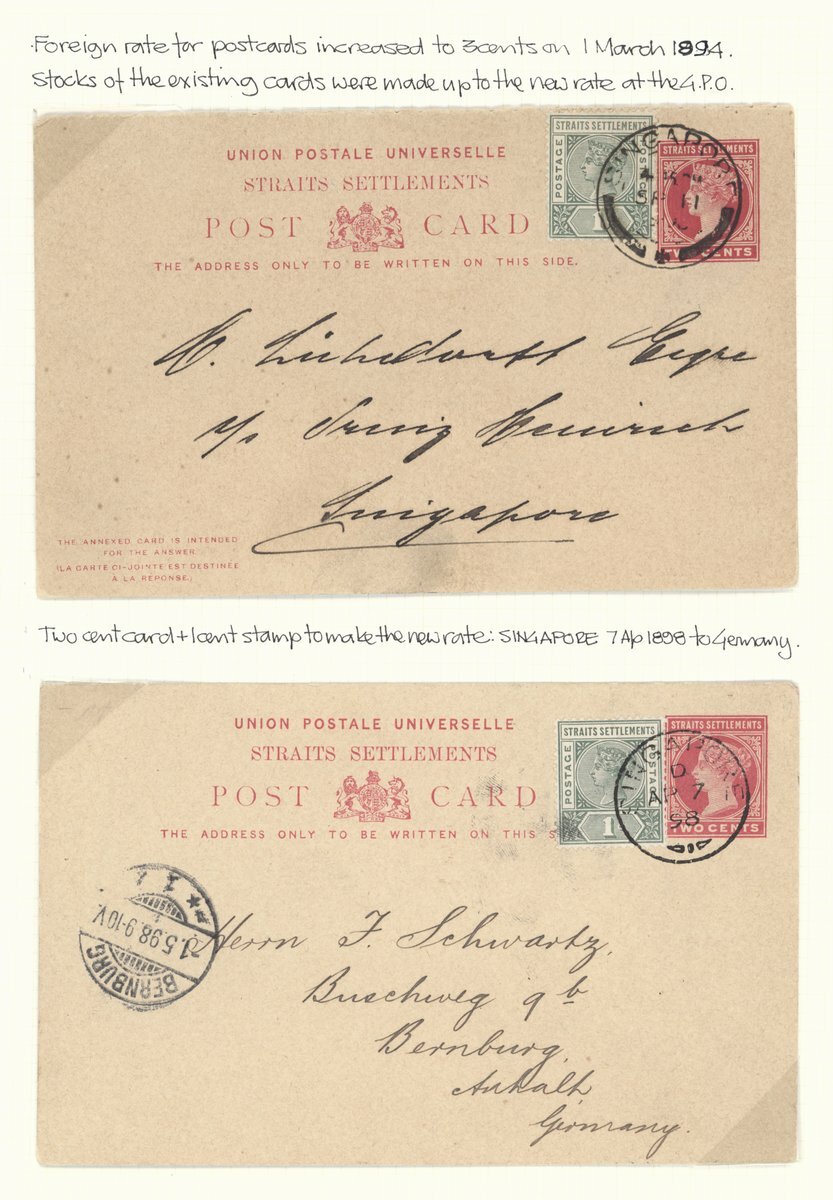 Foreign rate for postcards increased to 3cents on 1 March 1894.
Stocks of the existing cards were made up to the new rate at the G.P.O.
UNION POSTALE UNIVERSELLE
STRAITS SETTLEMENTS
POST CARD
THE ADDRESS ONLY TO BE WRITTEN ON THIS SIDE.
STRAITS SETTLEMENTS
POSTAGE
POSTAGE
1
STRAITS SETTLEMENTS
TWO CENTS
SINGAPORE
SP 11
c/o Heinrich
Singapore
THE ANNEXED CARD IS INTENDED
FOR THE ANSWER.
(LA CARTE CI-JOINTE EST DESTINÉE
À LA RÉPONSE.)
Two cent card + 1cent stamp to make the new rate: SINGAPORE 7 Ap 1898 to Germany.
UNION POSTALE UNIVERSELLE
STRAITS SETTLEMENTS
POST CARD
THE ADDRESS ONLY TO BE WRITTEN ON THIS S
STRAITS SETTLEMENTS
POSTAGE
POSTAGE
1
STRAITS SETTLEMENTS
TWO CENTS
SINGAPORE
D
AP 7
98
1.5.98.9-10V.
BERNBURG
Herrn F. Schwartz,
Buschweg 9b
Bernburg,
Anhalt,
Germany.